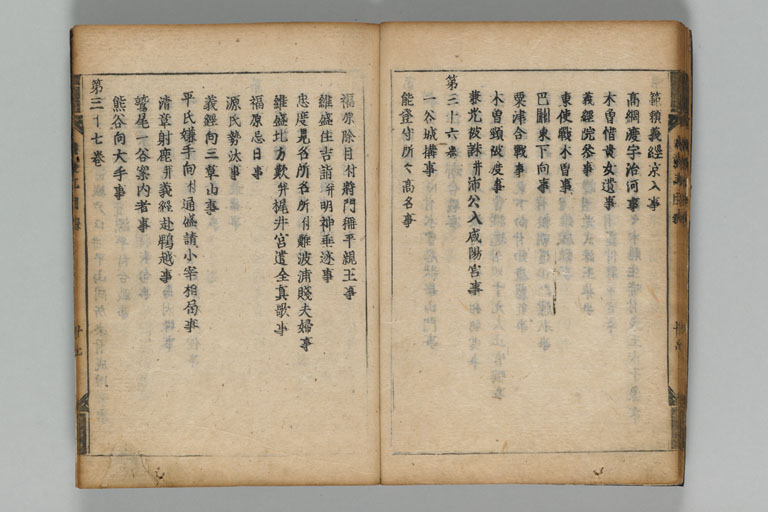 範頼義經京入事
高綱渡宇治河事
木曽惜貴女遺事
義經院參事
東使戰木曽事
巴關東下向事
粟津合戰事
木曽頸被渡事
兼光被誅并沛公入咸陽宮事
第三十六巻
一谷城構事
能登守所々高名事
福原除目付將門稱平親王事
維盛住吉詣并明神垂迹事
忠度見名所名所付難波浦賤夫婦事
維盛北方歎并梶井宮遣全真歌事
福原忌日事
源氏勢汰事
義經向三草山事
平氏嫌手向付通盛請小宰相局事
清章射鹿并義經赴鵯越事
鷲尾一谷案内者事
熊谷向大手事
第三十七巻